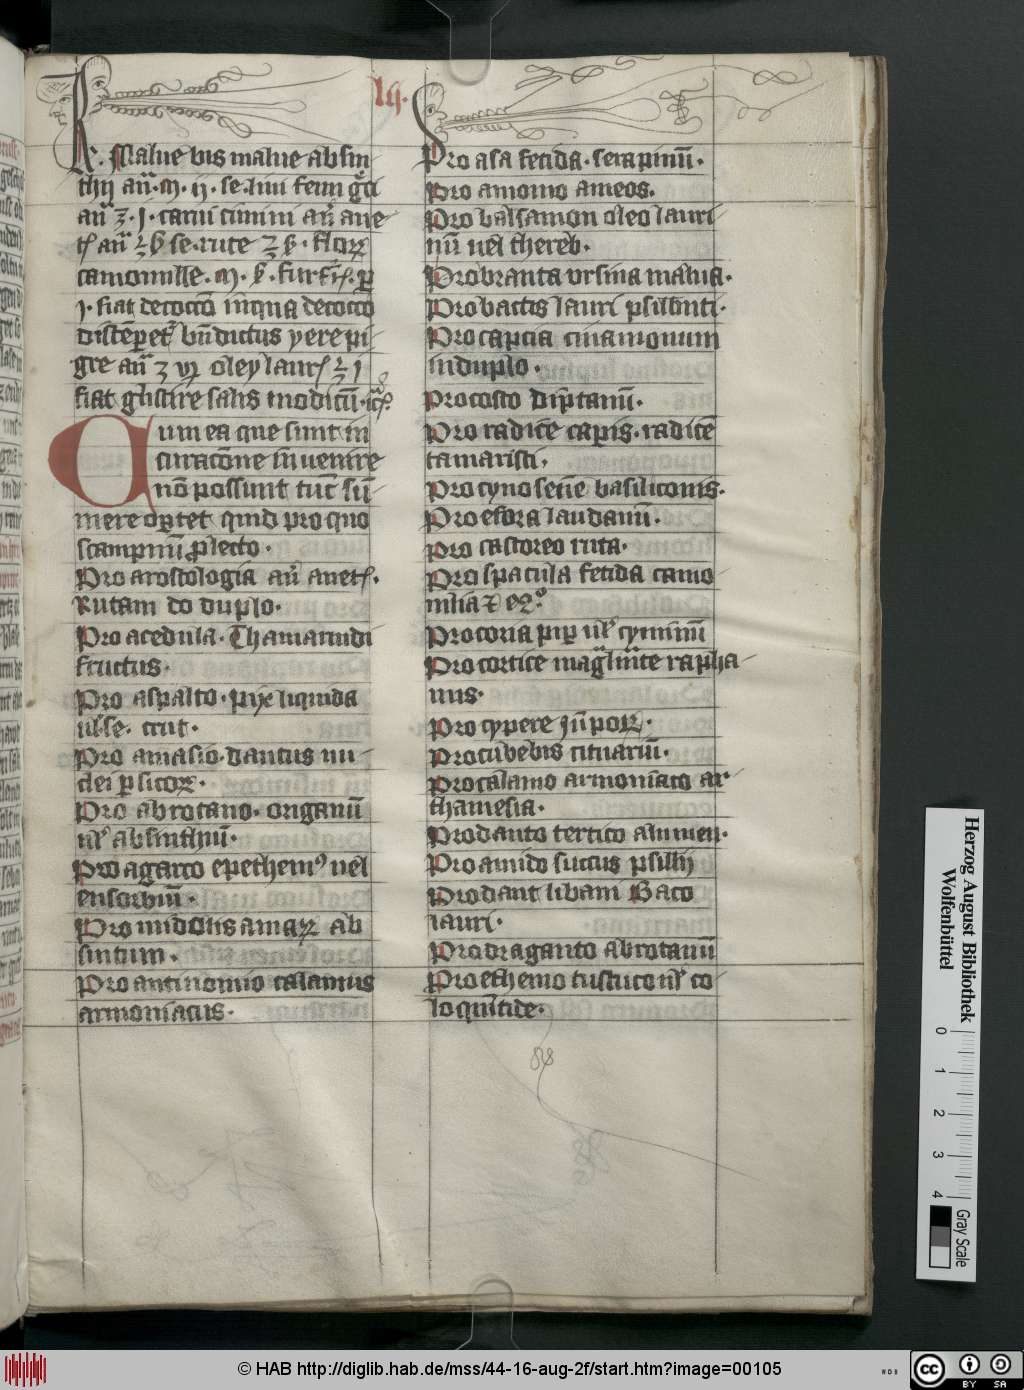 lij.
R. Malue bis malue absin
thij an̄. M. ij. se. lini fenu g̊ci
an̄ ʒ. j. carui cimini an̄ ane
se. rute
camomille. M.
j. fiat decoctō inqua decocto
bn̄dictus yere pi
gre an̄ ʒ oley laur
fiat glistire salis modicū.
Cum ea que sunt in
curacōne inuenire
nō possunt tūc sū
mere oꝑtet quid pro quo
pro lecto.
Pro arostologia an̄ anet.
Rutam do duplo.
Pro acedula. Thamarindi
fructus.
Pro aspalto. pix liquida
ul. se. crut.
Pro amasio. dantus ni
Pro abrotano. origanū
ul' absinthiū.
Pro agarco epethemꝰ uel
Pro midolis amaꝝ ab
sintium.
Pro antinomio calamus
armoniacus.
Pro asa fetida. serapinū.
Pro amomo ameos.
Pro balsamon oleo lauri
nū uel thereb.
Pro branta ursina malua.
Pro bactis lauri psillinti.
Pro captia cinamonum
in duplo.
Pro costo diptanū.
Pro radice caꝑis. radicē
tamarisci.
Pro cynosetie basiliconis.
Pro esbra laudanū.
Pro castoreo ruta.
Pro spatula fetida camo
milla
Pro coria pip ul' cyminū
Pro cortice rapha
nus.
Pro cypere
Pro cubebis cituariū.
Pro calamo armoniaco ar
thamesia.
Pro danto tertico alumen.
Pro amido succus psillij
Pro dant libani Baco
lauri.
Pro draganto abrotanū
Pro ethemo tusluco ul' co
loquītide.
Herzog August Bibliothek
Wolfenbüttel
0 1 2 3 4
Gray Scale
© HAB http://diglib.hab.de/mss/44-16-aug-2f/start.htm?image=00105
WDB
cc BY SA